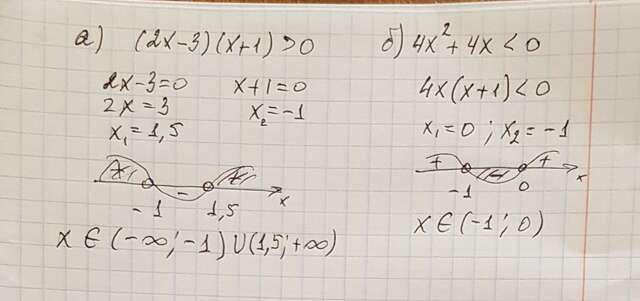 а) (2x-3)(x+1)>0
2x-3=0 x+1=0
2x=3 x₂=-1
x₁=1,5
+ - +
-1 1,5 x
x ∈ (-∞; -1) ∪ (1,5; +∞)
б) 4x²+4x<0
4x(x+1)<0
x₁=0; x₂=-1
+ - +
-1 0 x
x ∈ (-1; 0)